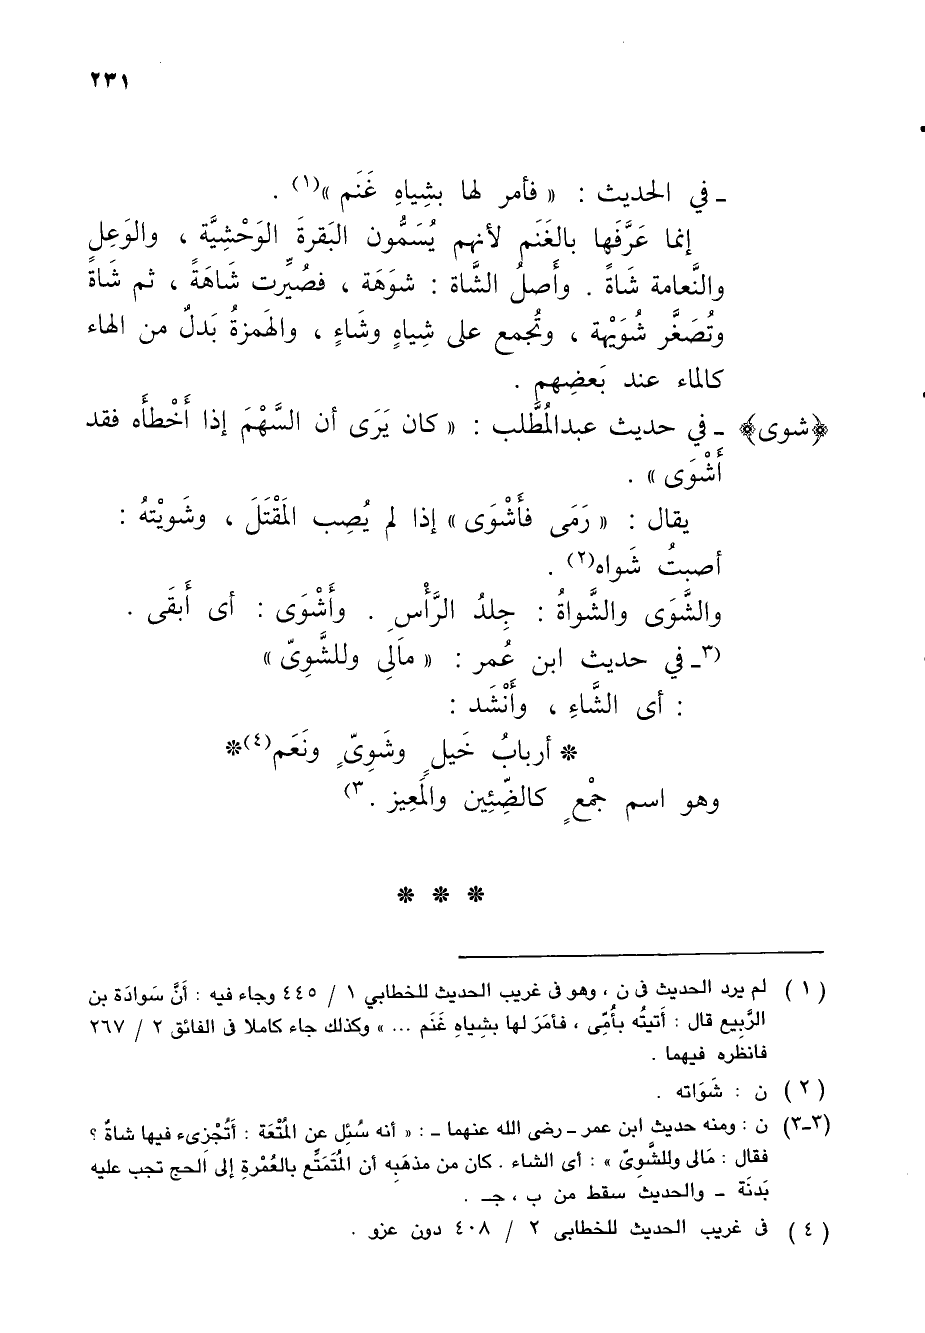 ٢٣١
ـ في الحديث : « فأمر لها بشِياهِ غَنَم »(١) .
إنما عَرَّفَها بالغَنَم لأنهم يُسَمُّون البَقرةَ الوَحْشِيَّة ، والوَعِل
والنَّعامة شَاةً . وأَصلُ الشَّاة : شوَهَة ، فصُيِّرت شَاهَةً ، ثم شَاةً
وتُصَغَّر شُوَيْهة ، وتُجمع على شِياهٍ وشَاءٍ ، والهَمزةُ بَدلٌ من الهاء
كالماء عند بَعضِهم .
﴿شوى﴾ ـ في حديث عبدالمُطَّلب : « كان يَرَى أن السَّهْمَ إذا أَخْطأَه فقد
أَشْوَى » .
يقال : « رَمَى فأَشْوَى » إذا لم يُصِب المَقْتَلَ ، وشَويْتهُ :
أصبتُ شَواه(٢) .
والشَّوَى والشَّواةُ : جِلدُ الرَّأْسِ . وأَشْوَى : أى أَبقَى .
(٣ـ في حديث ابن عُمر : « مالِى وللشَّوِىّ »
: أى الشَّاءِ ، وأَنْشَد :
* أربابُ خَيلٍ وشَوِىٍّ ونَعَم(٤)*
وهو اسم جمْعٍ كالضِّئِين والمَعِيز .٣)
* * *
(١) لم يرد الحديث فى ن ، وهو فى غريب الحديث للخطابي ١ / ٤٤٥ وجاء فيه : أنَّ سَوادَة بن
الرَّبِيع قال : أَتيتُه بأُمِّى ، فأمَرَ لها بشِياهِ غَنَم ... » وكذلك جاء كاملا فى الفائق ٢ / ٢٦٧
فانظره فيهما .
(٢) ن : شَوَاته .
(٣ـ٣) ن : ومنه حديث ابن عمر ـ رضى الله عنهما ـ : « أنه سُئِل عن المُتْعَة : أَتُجْزِىء فيها شاةٌ ؟
فقال : مَالى وللشَّوِىّ » : أى الشاء . كان من مذهَبِه أن المُتَمَتِّع بالعُمْرة إلى الحج تجب عليه
بَدنَة ـ والحديث سقط من ب ، جـ .
(٤) فى غريب الحديث للخطابى ٢ / ٤٠٨ دون عزو .